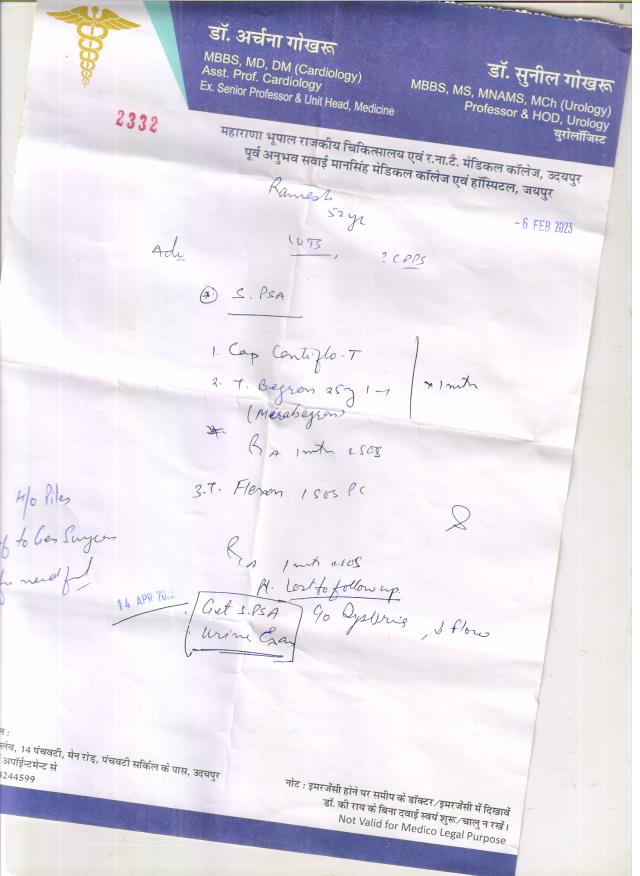 डॉ. अर्चना गोखरू
MBBS, MD, DM (Cardiology)
Asst. Prof. Cardiology
Ex. Senior Professor & Unit Head, Medicine
डॉ. सुनील गोखरू
MBBS, MS, MNAMS, MCh (Urology)
Professor & HOD, Urology
यूरोलॉजिस्ट
2332
महाराणा भूपाल राजकीय चिकित्सालय एवं र.ना.टै. मेडिकल कॉलेज, उदयपुर
पूर्व अनुभव सवाई मानसिंह मेडिकल कॉलेज एवं हॉस्पिटल, जयपुर
Ramesh
52 yr
- 6 FEB 2023
Adv LUTS, ? CPPS
* S. PSA
1. Cap Contiflo-T
2. T. Begron 25g 1-1 x 1 mth
(Merabegron)
R/A 1 mth & SOS
3. T. Flexon 1 SOS PC
H/O Piles
to Gen Surgeon
for needful
R/A 1 mth & SOS
Pt. Lost to follow up.
14 APR
Get S. PSA c/o Dysuria, ↓ flow
Urine Exam
14 पंचवटी, मेन रोड़, पंचवटी सर्किल के पास, उदयपुर
अपॉईन्टमेन्ट से
244599
नोट : इमरजेंसी होने पर समीप के डॉक्टर/इमरजेंसी में दिखावें
डॉ. की राय के बिना दवाई स्वयं शुरू/चालु न रखें।
Not Valid for Medico Legal Purpose